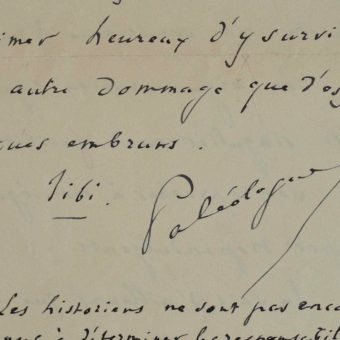 imer heureux d'y survi
autre dommage que d'os
ques embruns.
Tibi.
Paléologue
Les historiens ne sont pas enco
à déterminer la responsabil